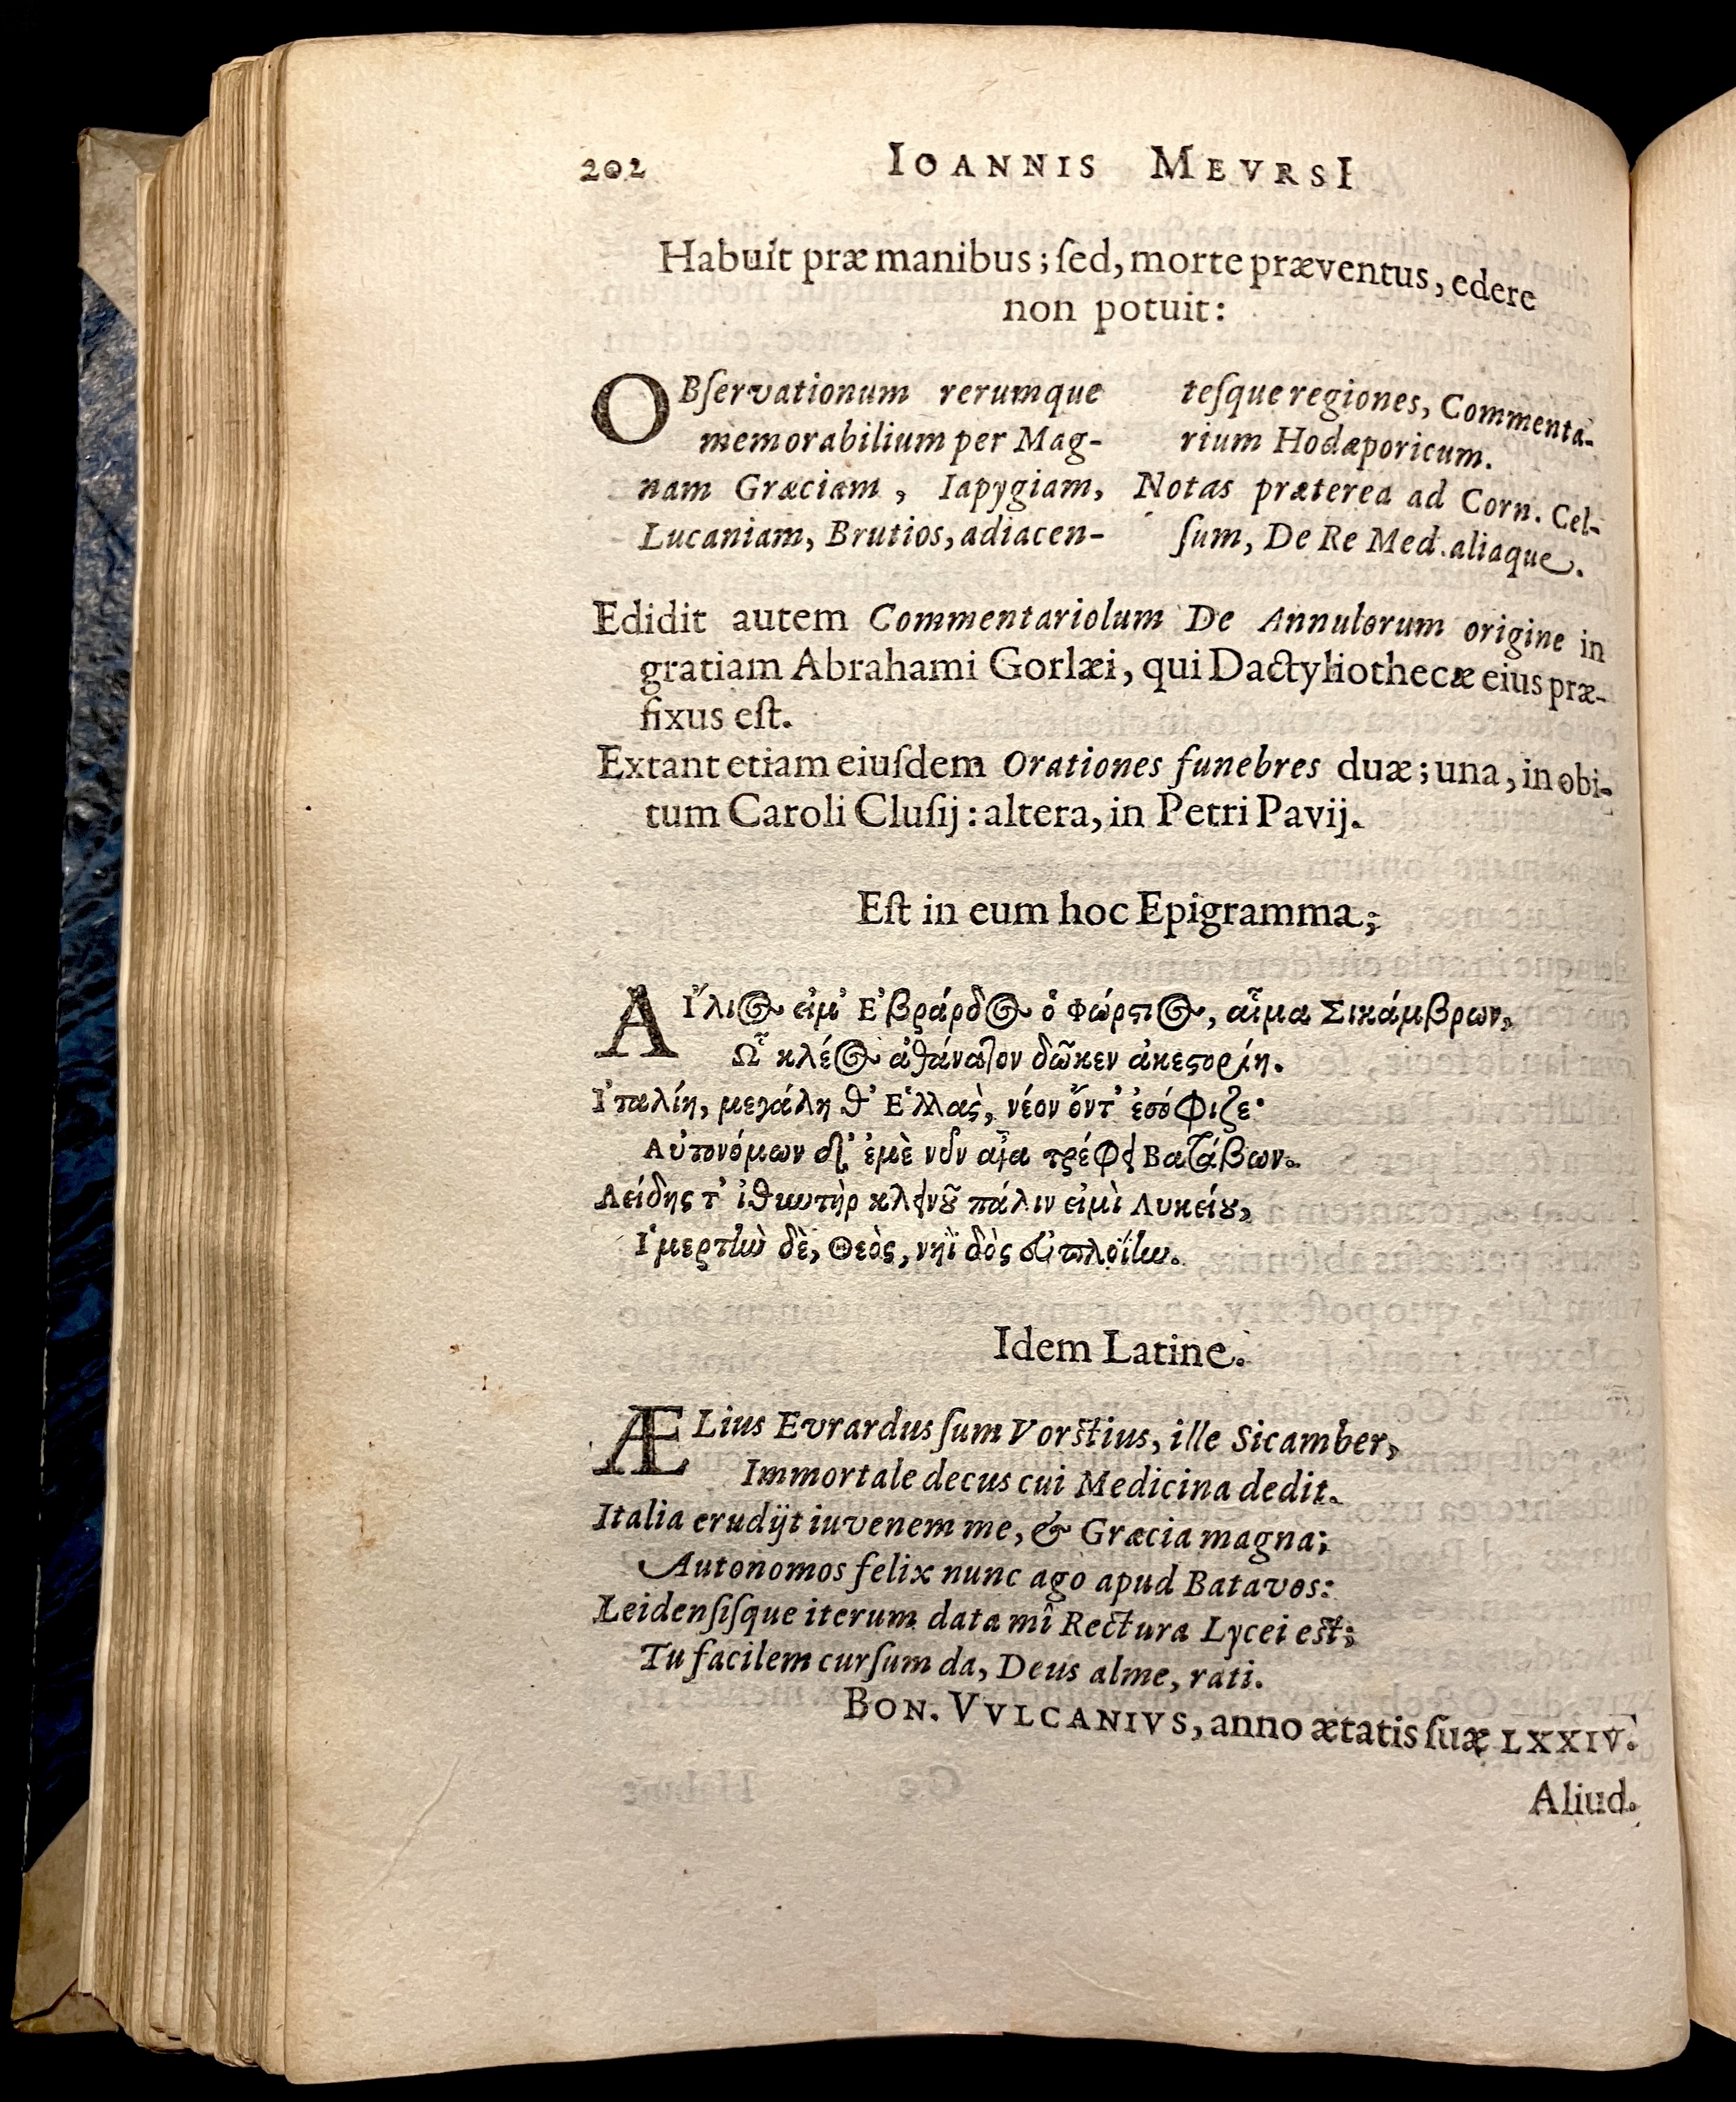 202 IOANNIS MEVRSI
Habuit præ manibus; ſed, morte præventus, edere
non potuit:
OBſervationum rerumque
memorabilium per Mag-
nam Græciam, Iapygiam,
Lucaniam, Brutios, adiacen-
teſque regiones, Commenta-
rium Hodæporicum.
Notas præterea ad Corn. Cel-
ſum, De Re Med. aliaque.
Edidit autem Commentariolum De Annulorum origine in
gratiam Abrahami Gorlæi, qui Dactyliothecæ eius præ-
fixus eſt.
Extant etiam eiuſdem Orationes funebres duæ; una, in obi-
tum Caroli Cluſij: altera, in Petri Pavij.
Eſt in eum hoc Epigramma;
ΑΙ῎λιος εἰμ' Ε'βράρδος ὁ Φώρστιος, αἷμα Σικάμβρων,
Ω῟ κλέος ἀθάνατον δῶκεν ἀκεστορίη.
Ι'ταλίη, μεγάλη θ' Ε῾λλὰς, νέον ὄντ' ἐσόφιζε·
Αὐτονόμων δ' ἐμὲ νῦν αἶα τρέφει Βατάβων.
Λείδης τ' ἰθωτὴρ κλεινοῦ πάλιν εἰμὶ Λυκείου,
Ι῾μερτὴν δὲ, Θεὸς, νηῒ δὸς εὐπλοΐην.
Idem Latine.
ÆLius Evrardus ſum Vorſtius, ille Sicamber,
Immortale decus cui Medicina dedit.
Italia erudijt iuvenem me, & Græcia magna;
Autonomos felix nunc ago apud Batavos:
Leidenſiſque iterum data mî Rectura Lycei eſt;
Tu facilem curſum da, Deus alme, rati.
BON. VVLCANIVS, anno ætatis ſuæ LXXIV.
Aliud.